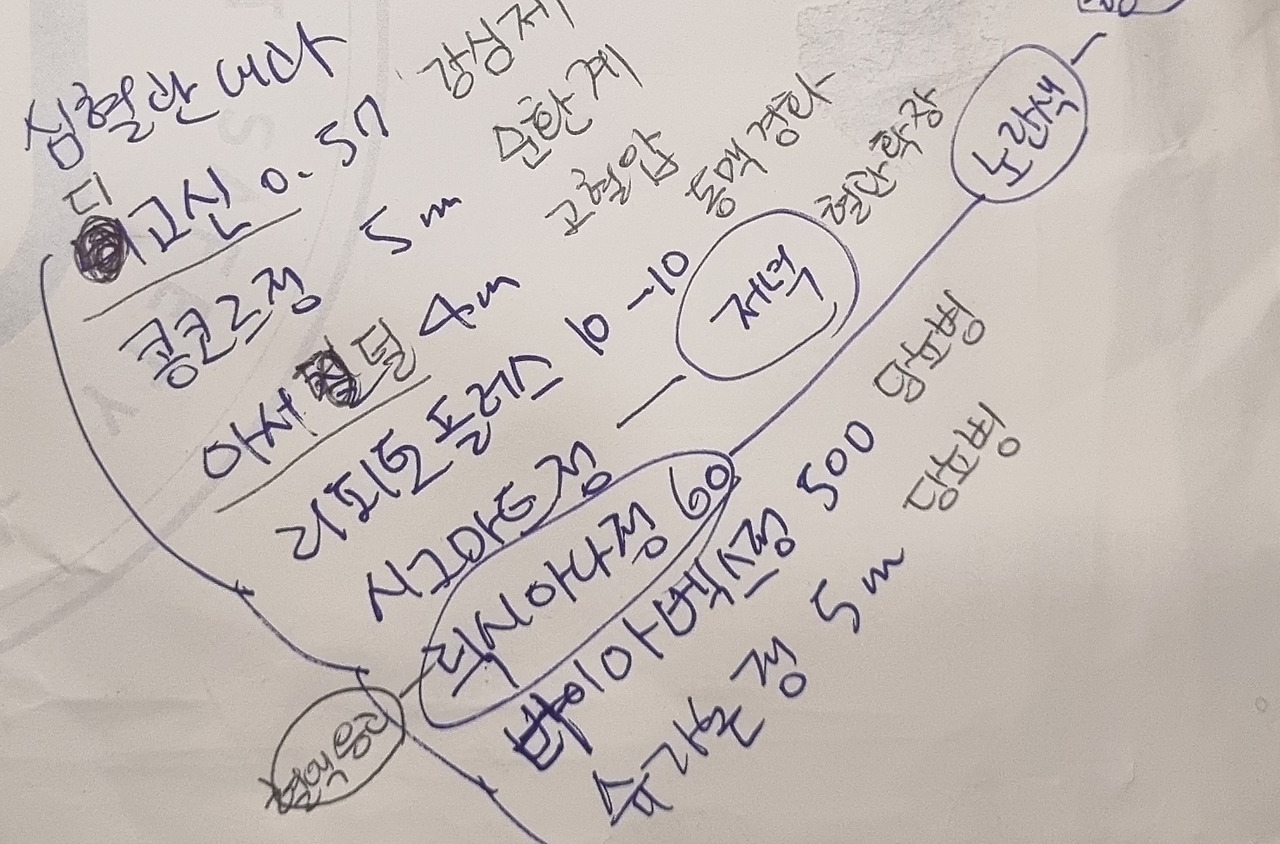 심혈관내과
디고신 0.57 강심제
콩코르정 5m 순환계
아서틸 4m 고혈압
리피토플러스 10-10 저녁 동맥경화
시그마트정 혈관확장
릭시아나정 60 노란색
바이아벡스정 500 당뇨병
슈가논정 5m 당뇨병